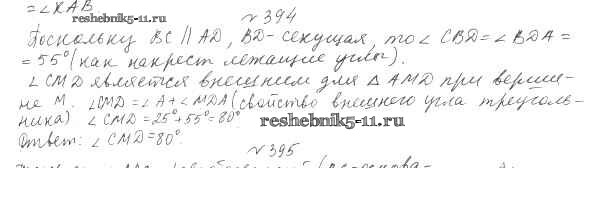 = ∠KAB
reshebnik5-11.ru
№ 394
Поскольку BC || AD, BD - секущая, то ∠CBD = ∠BDA =
= 55° (как накрест лежащие углы).
∠CMD является внешнием для △AMD при верши-
не M. ∠CMD = ∠A + ∠MDA (свойство внешнего угла треуголь-
ника) ∠CMD = 25° + 55° = 80°
reshebnik5-11.ru
Ответ: ∠CMD = 80°.
№ 395